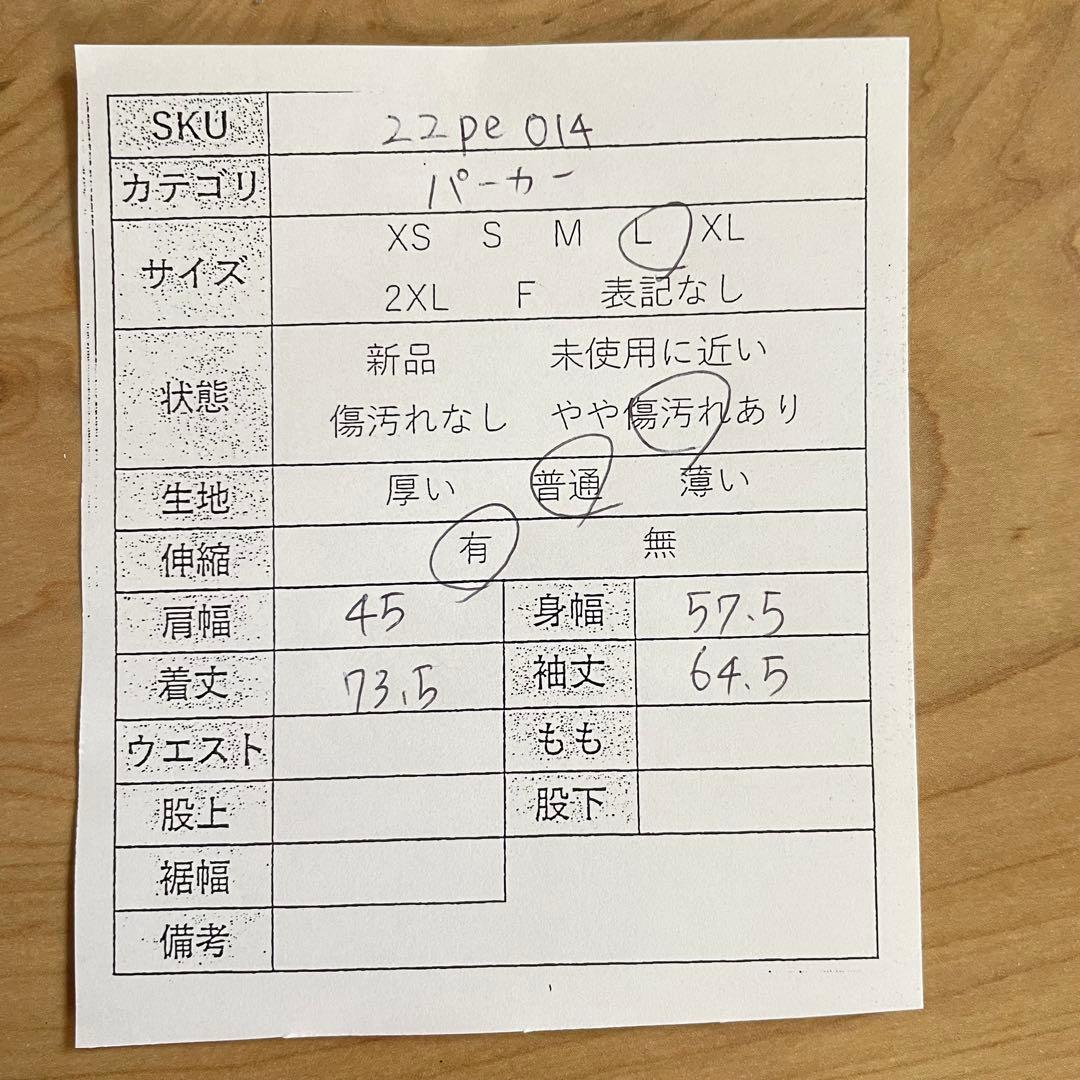 SKU 22pe 014
カテゴリ パーカー
サイズ XS S M L XL
2XL F 表記なし
状態 新品 未使用に近い
傷汚れなし やや傷汚れあり
生地 厚い 普通 薄い
伸縮 有 無
肩幅 45 身幅 57.5
着丈 73.5 袖丈 64.5
ウエスト もも
股上 股下
裾幅
備考